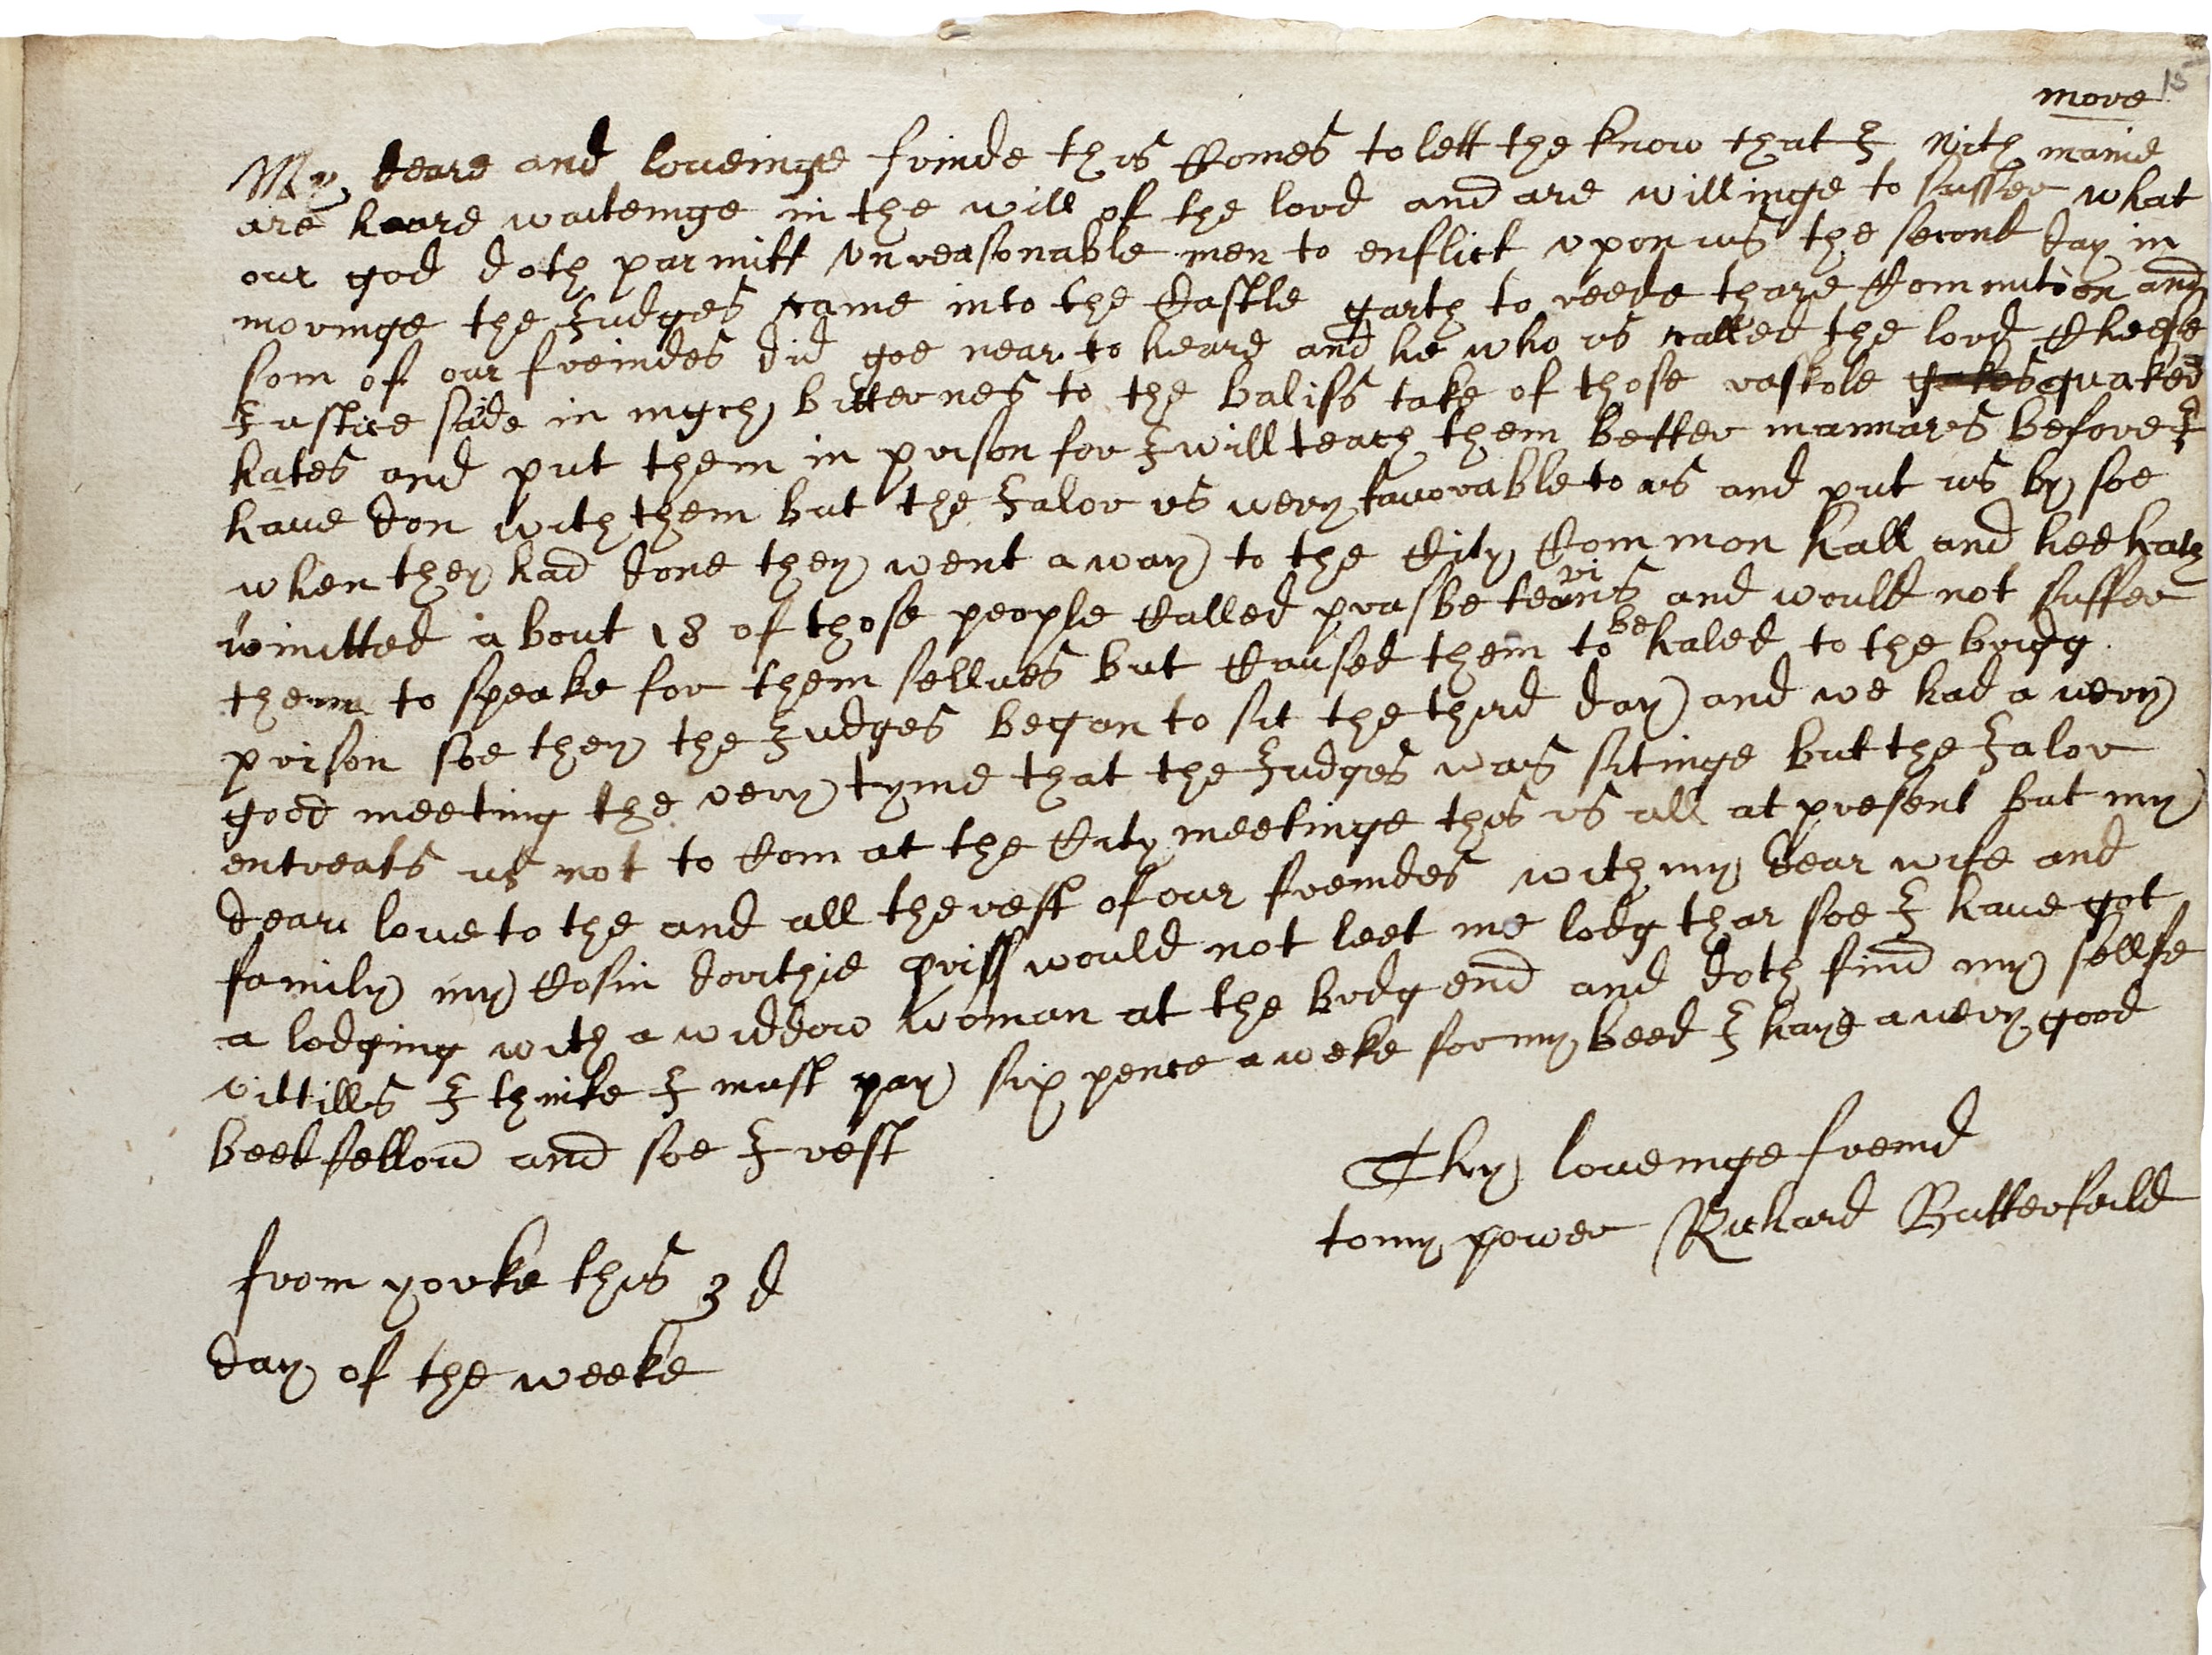 more
My deare and loueinge frinde this Comes to lett the know that I with manie
are heare waiteinge in the will of the lord and are willinge to suffer what
our god doth parmitt vnreasonable men to enflict vpon us the second day in
moringe the Judges came into the Castle garth to reede thare Commition and
som of our freindes did goe near to heare and he who is called the lord Cheefe
Justice saide in mych bitternes to the balifs take of those raskole quakes quakers
hates and put them in prison for I will teach them better mannares before I
haue don with them but the Jalor is uery fauorable to us and put us by soe
when they had done they went away to the City Common hall and hee hath
comitted about 18 of those people Called prasbeterians and would not suffer
them to speake for them sellues but Caused them to be haled to the bridg
prison soe they the Judges began to sit the third day and we had a uery
good meeting the very tyme that the Judges was sitinge but the Jalor
entreats us not to Com at the City meetinge this is all at present but my
deare loue to the and all the rest of our freindes with my dear wife and
family my Cosin dorithie would not leet me lodg thar soe I haue got
a lodging with a widdow woman at the bridg end and doth find my sellfe
vittills I thinke I must pay six pence a weke for my beed I haue a uery good
beed fellow and soe I rest
Thy loueinge freind
to my power Richard Butterfeild
from yorke this 3 d
day of the weeke